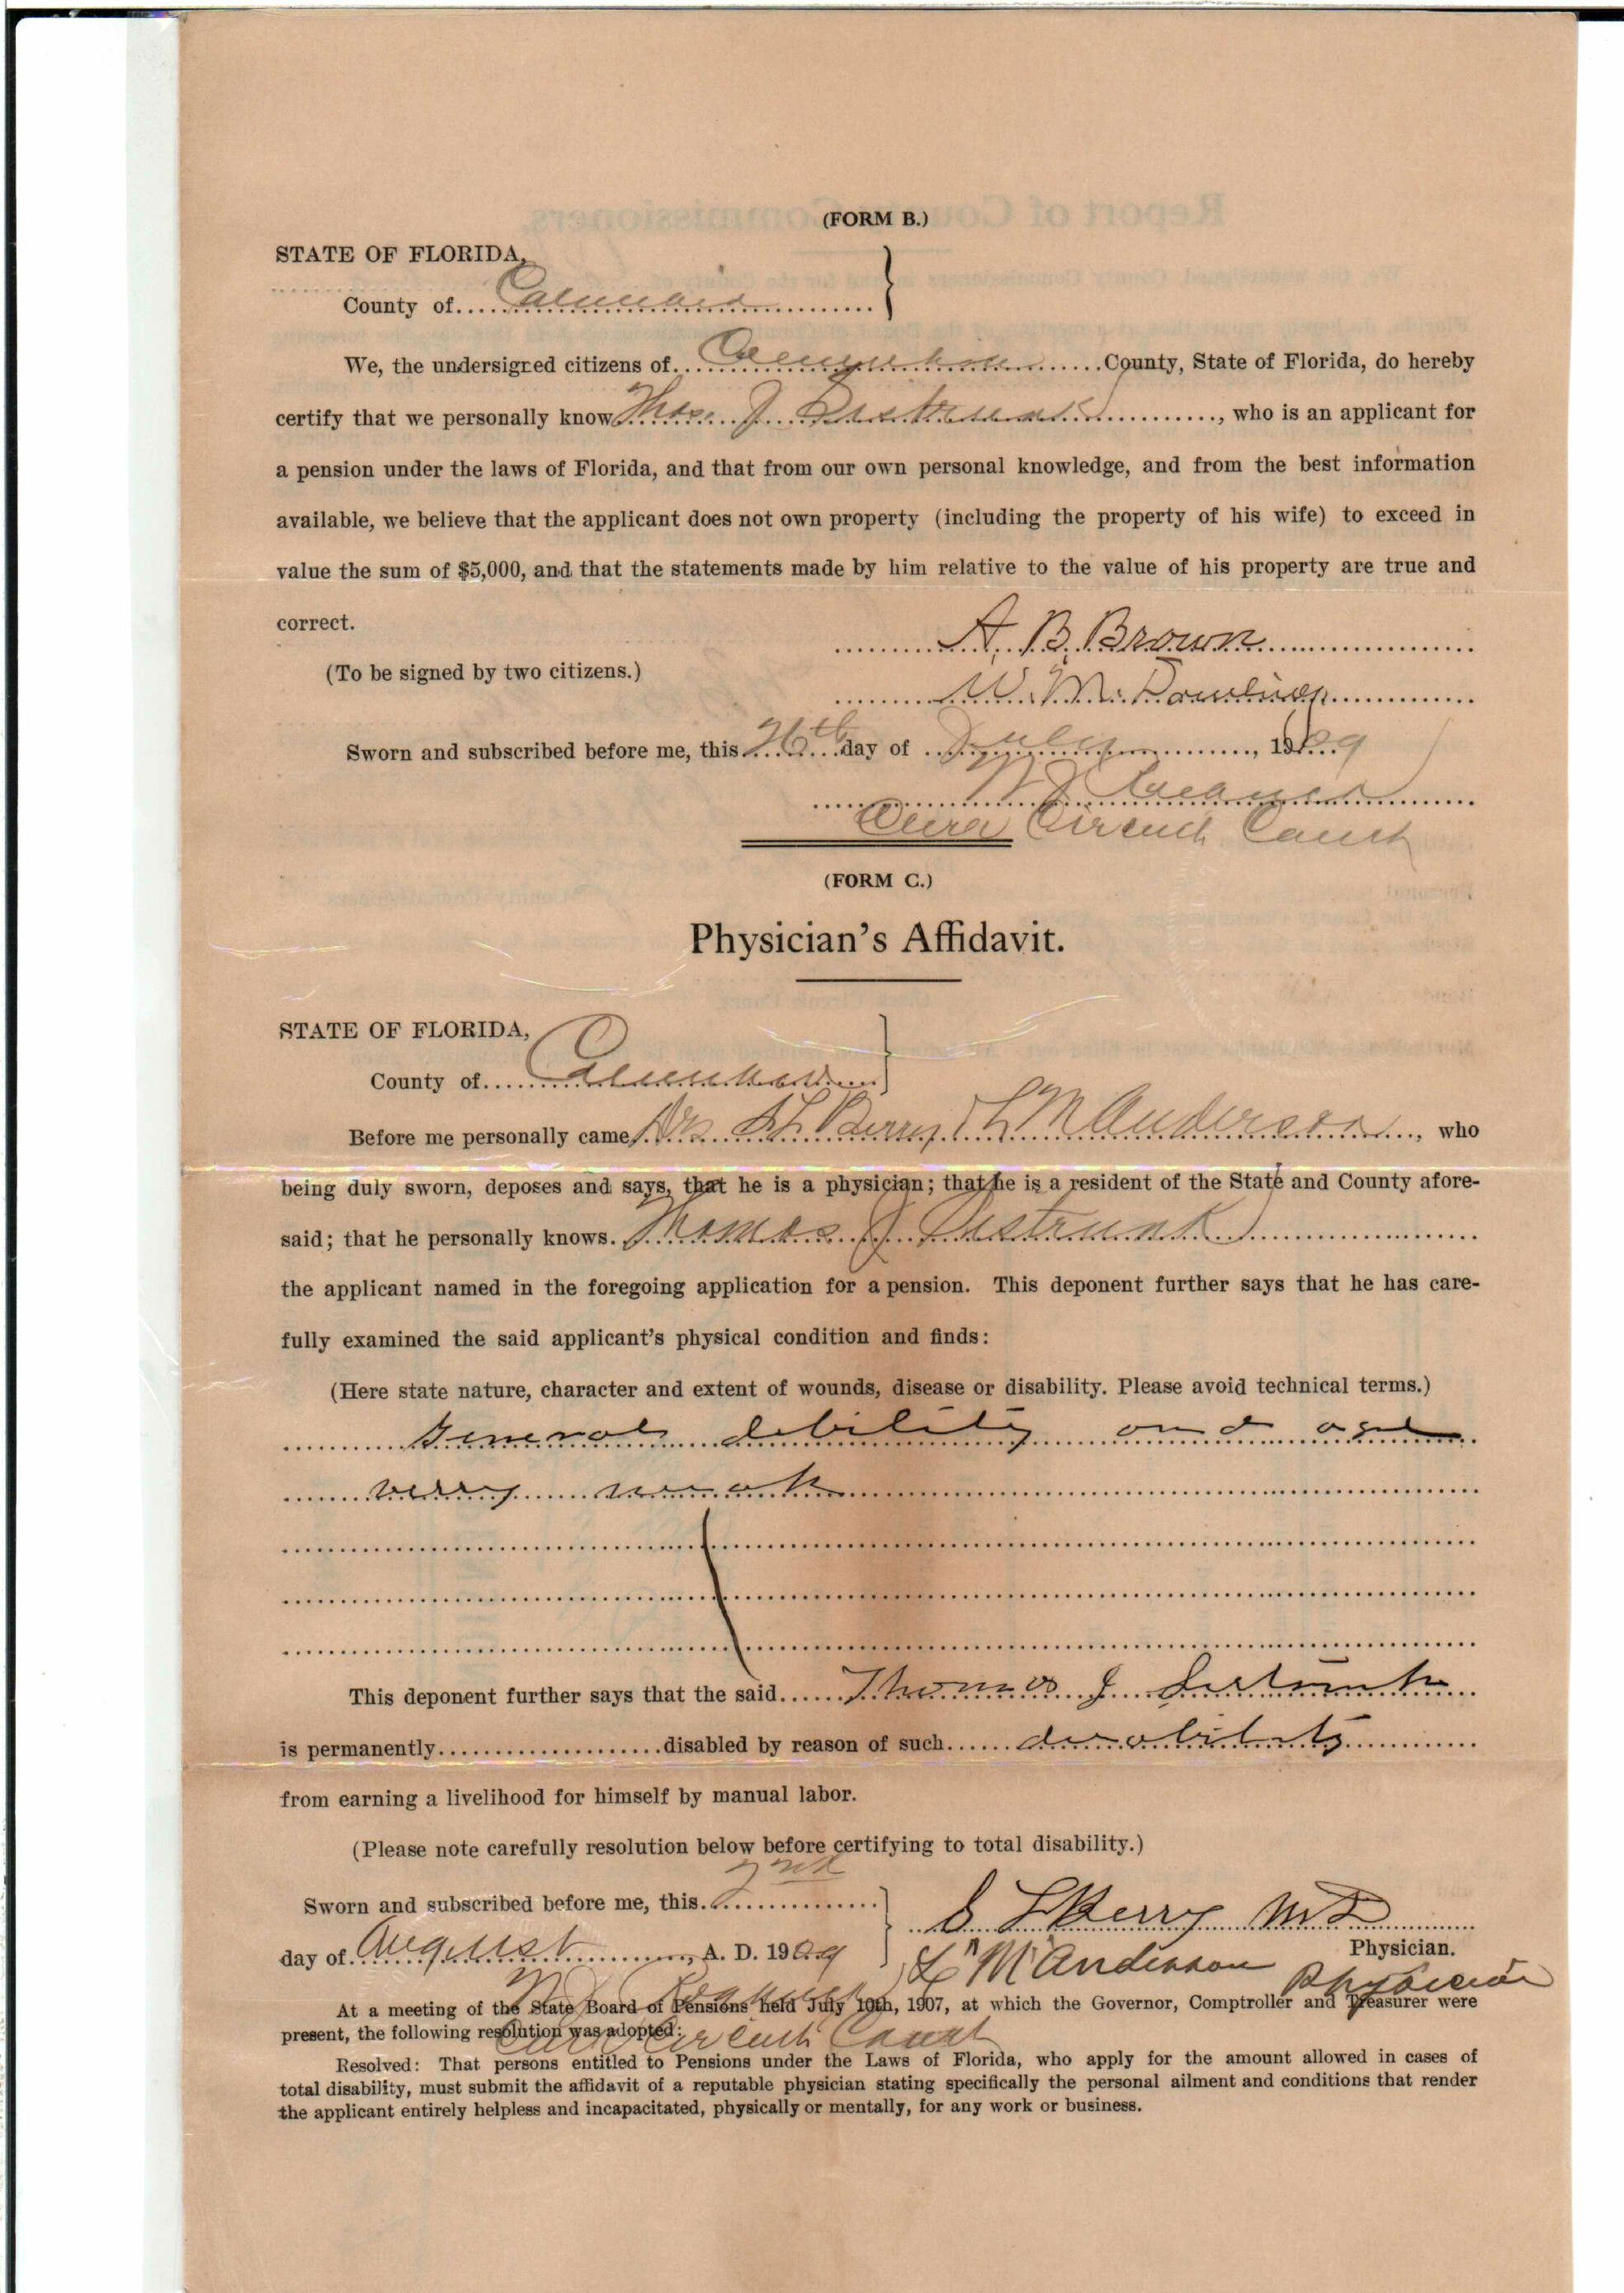 (FORM B.)
STATE OF FLORIDA,
County of
We, the undersigned citizens of County, State of Florida, do hereby
certify that we personally know Thos. J. , who is an applicant for
a pension under the laws of Florida, and that from our own personal knowledge, and from the best information
available, we believe that the applicant does not own property (including the property of his wife) to exceed in
value the sum of $5,000, and that the statements made by him relative to the value of his property are true and
correct.
A. B. Brown
(To be signed by two citizens.)
W. M.
Sworn and subscribed before me, this day of July, 1909
Circuit Court
(FORM C.)
Physician's Affidavit.
STATE OF FLORIDA,
County of
Before me personally came Drs. S L Berry & L M Anderson, who
being duly sworn, deposes and says, that he is a physician; that he is a resident of the State and County afore-
said; that he personally knows. Thomas J
the applicant named in the foregoing application for a pension. This deponent further says that he has care-
fully examined the said applicant's physical condition and finds:
(Here state nature, character and extent of wounds, disease or disability. Please avoid technical terms.)
General debility and age
verry weak
This deponent further says that the said Thomas J
is permanently disabled by reason of such
from earning a livelihood for himself by manual labor.
(Please note carefully resolution below before certifying to total disability.)
2nd
Sworn and subscribed before me, this
S L Berry MD
day of August, A. D. 1909
Physician.
L M Anderson Physician
At a meeting of the State Board of Pensions held July 10th, 1907, at which the Governor, Comptroller and Treasurer were
present, the following resolution was adopted:
Circuit Court
Resolved: That persons entitled to Pensions under the Laws of Florida, who apply for the amount allowed in cases of
total disability, must submit the affidavit of a reputable physician stating specifically the personal ailment and conditions that render
the applicant entirely helpless and incapacitated, physically or mentally, for any work or business.